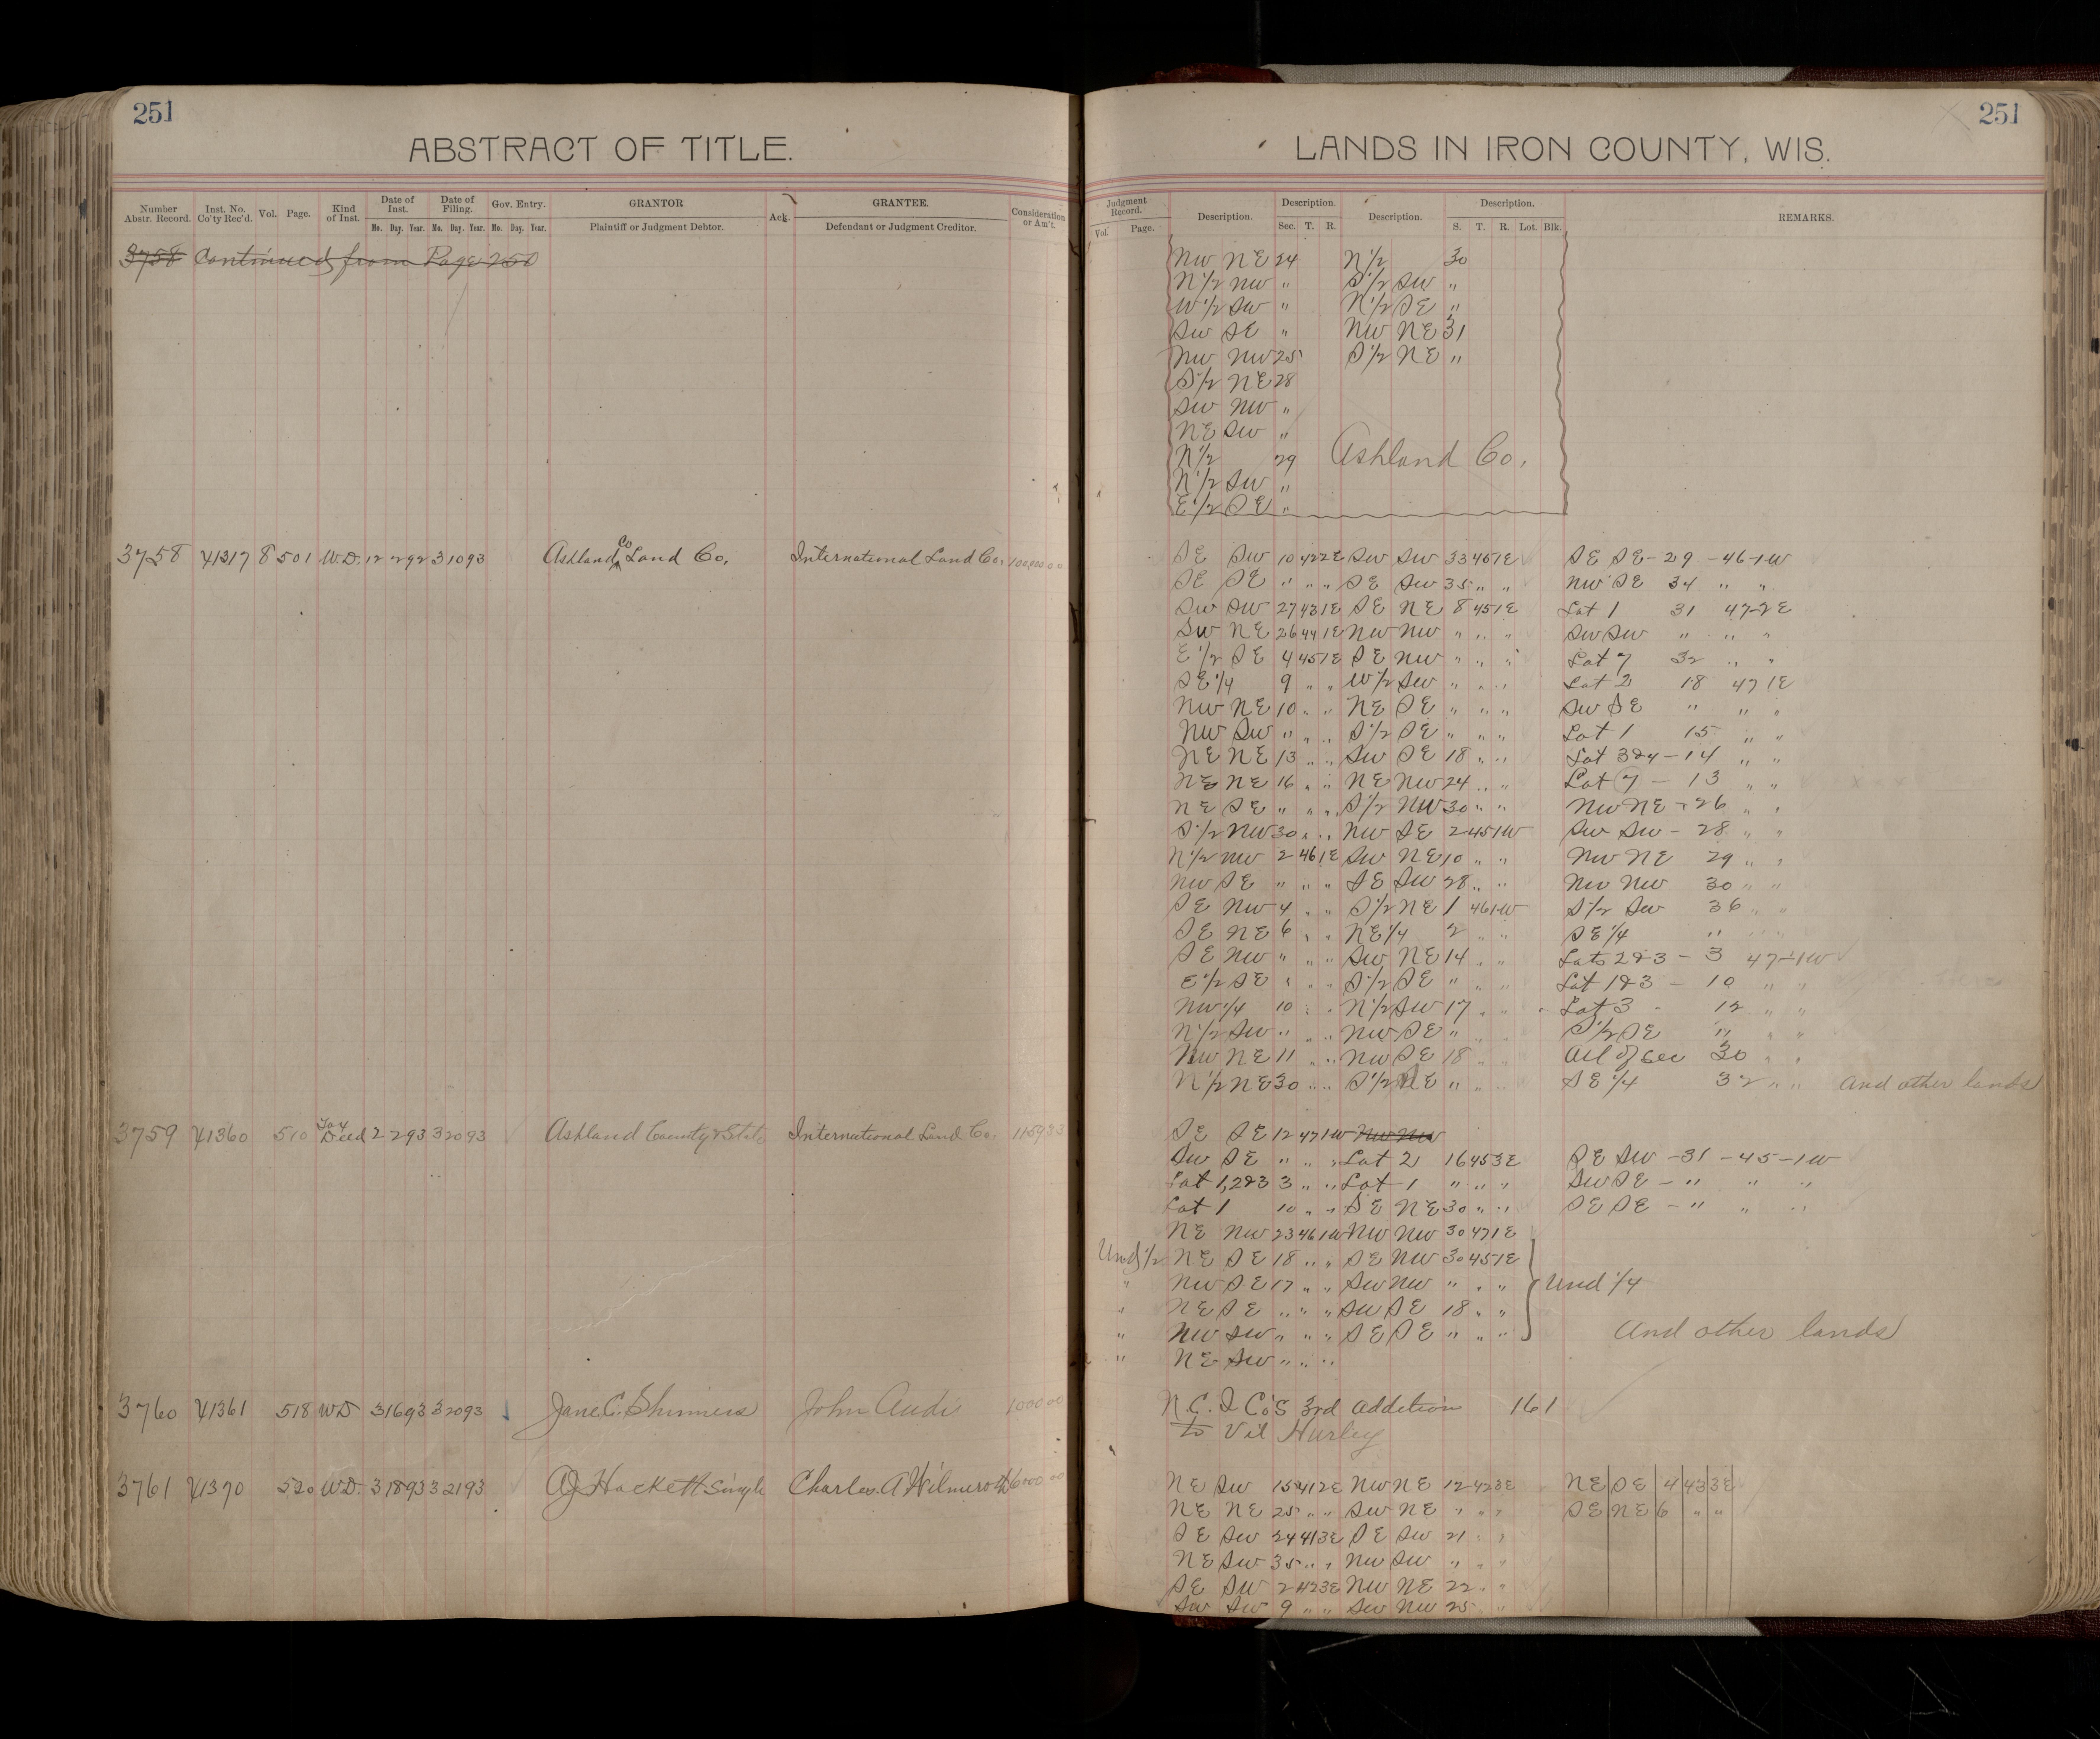 251
ABSTRACT OF TITLE.
Number Abstr. Record. Inst. No. Co'ty Rec'd. Vol. Page. Kind of Inst. Date of Inst. Date of Filing. Gov. Entry. GRANTOR Ack. GRANTEE. Consideration or Am't.
Mo. Day. Year. Mo. Day. Year. Mo. Day. Year. Plaintiff or Judgment Debtor. Defendant or Judgment Creditor.
3758 Continued from Page 250
3758 41317 8 501 W.D. 12 2 92 3 10 93 Ashland Co Land Co. International Land Co.
3759 41360 510 Tax Deed 2 2 93 3 20 93 Ashland County & State International Land Co.
3760 41361 518 WD 3 16 93 3 20 93 Jane C. Shinners John Audi 1000 00
3761 41370 520 W.D. 3 18 93 3 21 93 A J Hackett single Charles A Wilmeroth 6000 00
251
LANDS IN IRON COUNTY, WIS.
Judgment Record. Description. Description. Description. Description. REMARKS.
Vol. Page. Sec. T. R. S. T. R. Lot. Blk.
NW NE 24 N 1/2 30
N 1/2 NW " S 1/2 SW "
W 1/2 SW " N 1/2 SE "
SW SE " NW NE 31
NW NW 25 S 1/2 NE "
S 1/2 NE 28
SW NW "
NE SW "
N 1/2 29 Ashland Co.
N 1/2 SW "
E 1/2 SE "
SE SW 10 42 2E SW SW 33 46 1E SE SE - 29 - 46 - 1W
SE SE " " " SE SW 35 " " NW SE 34 " "
SW SW 27 43 1E SE NE 8 45 1E Lot 1 31 47-2E
SW NE 26 44 1E NW NW " " " SW SW " " "
E 1/2 SE 4 45 1E SE NW " " " Lot 7 32 " "
SE 1/4 9 " " W 1/2 SW " " " Lot 2 18 47 1E
NW NE 10 " " NE SE " " " SW SE " " "
NW SW " " " S 1/2 SE " " " Lot 1 15 " "
NE NE 13 " " SW SE 18 " " Lot 3 & 4 - 14 " "
NE NE 16 " " NE NW 24 " " Lot 7 - 13 " "
NE SE " " " S 1/2 NW 30 " " NW NE - 26 " "
S 1/2 NW 30 " " NW SE 2 45 1W SW SW - 28 " "
N 1/2 NW 2 46 1E SW NE 10 " " NW NE 29 " "
NW SE " " " SE SW 28 " " NW NW 30 " "
SE NW 4 " " S 1/2 NE 1 46 1W S 1/2 SW 36 " "
SE NE 6 " " NE 1/4 2 " " SE 1/4 " " "
SE NW " " " SW NE 14 " " Lots 2 & 3 - 3 47-1W
E 1/2 SE " " " S 1/2 SE " " " Lot 1 & 3 - 10 " "
NW 1/4 10 " " N 1/2 SW 17 " " Lot 3 - 12 " "
N 1/2 SW " " " NW SE " S 1/2 SE " " "
NW NE 11 " " NW SE 18 " " All of Sec 30 " "
N 1/2 NE 30 " " S 1/2 NE " " " SE 1/4 32 " " And other lands
SE SE 12 47 1W NW NW
SW SE " " " Lot 2 16 45 3E SE SW - 31 - 45 - 1W
Lot 1, 2 & 3 3 " " Lot 1 " " " SW SE - " " "
Lot 1 10 " " SE NE 30 " " SE SE - " " "
NE NW 23 46 1W NW NW 30 47 1E
Und 1/2 NE SE 18 " " SE NW 30 45 1E
" NW SE 17 " " SW NW " " " Und 1/4
" NE SE " " " SW SE 18 " "
" NW SW " " " SE SE " " " And other lands
" NE SW " " "
N.C. I Co's 3rd Addition 16 1
to Vil Hurley
NE SW 15 41 2E NW NE 12 42 3E NE SE 4 43 3E
NE NE 25 " " SW NE " " " SE NE 6 " "
SE SW 24 41 3E SE SW 21 " "
NE SW 35 " " NW SW " " "
SE SW 2 42 3E NW NE 22 " "
SW SW 9 " " SW NW 25 " "